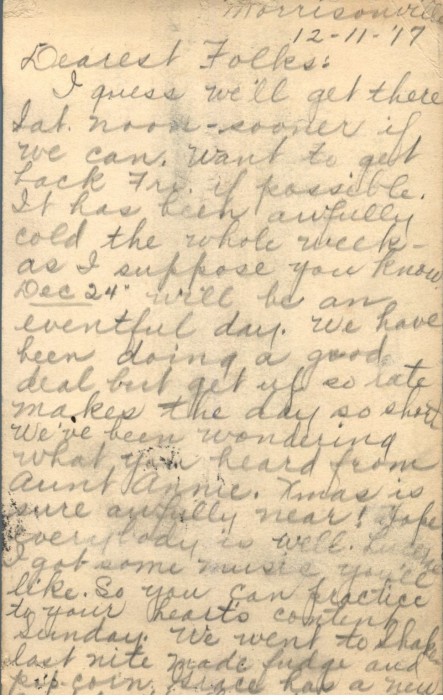 Morrisonvill
12-11-'17
Dearest Folks:
I guess we'll get there
Sat. noon-sooner if
we can. Want to get
back Fri. if possible.
It has been awfully
cold the whole week-
as I suppose you know
Dec 24" will be an
eventful day. We have
been doing a good
deal but get up so late
makes the day so short
We've been wondering
what you heard from
Aunt Annie. Xmas is
sure awfully near! Hope
everybody is well.
I got some music you'll
like. So you can practice
to your hearts content
Sunday. We went to
last nite made fudge and
pop-corn. has a new